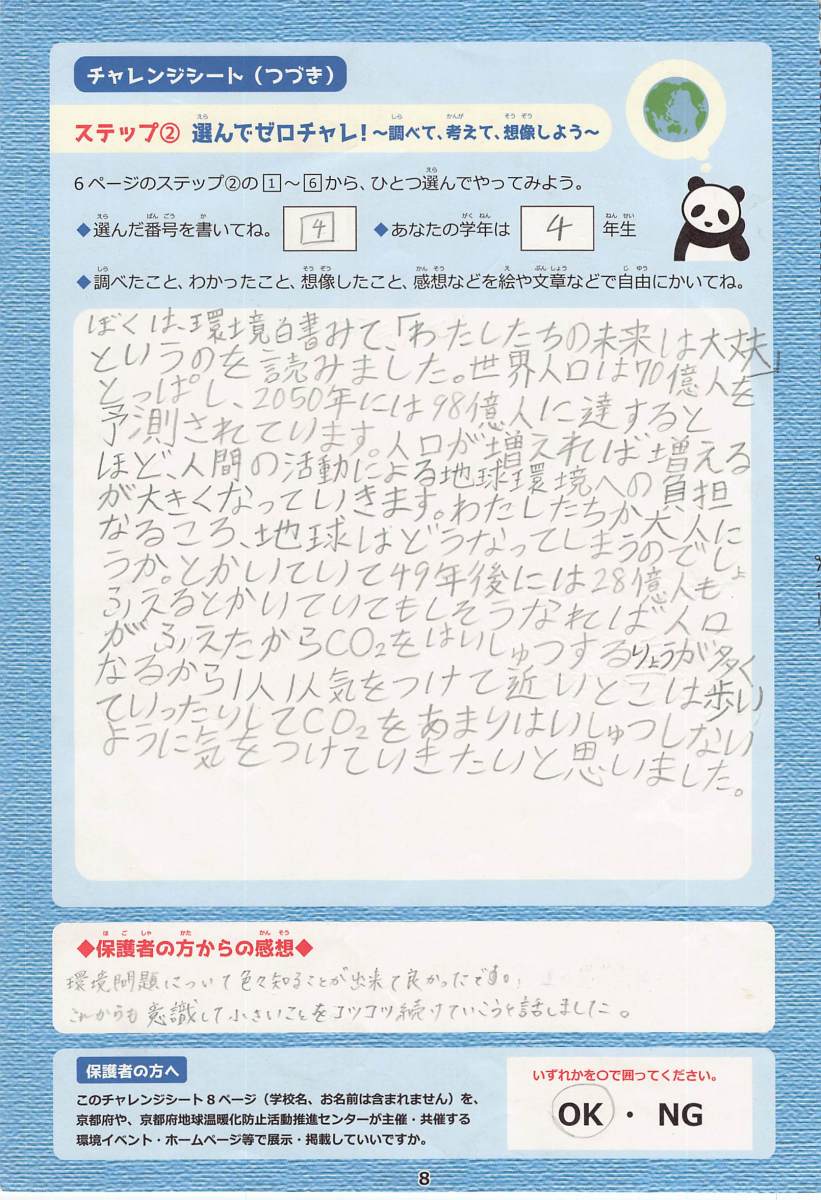 チャレンジシート（つづき）
ステップ② 選んでゼロチャレ！～調べて、考えて、想像しよう～
6ページのステップ②の1～6から、ひとつ選んでやってみよう。
◆選んだ番号を書いてね。 4 ◆あなたの学年は 4 年生
◆調べたこと、わかったこと、想像したこと、感想などを絵や文章などで自由にかいてね。
ぼくは、環境白書みて、「わたしたちの未来は大丈夫」
というのを読みました。世界人口は70億人を
とっぱし、2050年には98億人に達すると
予測されています。人口が増えれば増える
ほど、人間の活動による地球環境への負担
が大きくなっていきます。わたしたちが大人に
なるころ、地球はどうなってしまうのでしょ
うか。とかいていて49年後には28億人も
ふえるとかいていてもしそうなれば人口
がふえたからCO2をはいしゅつするりょうが多く
なるから1人1人気をつけて近いとこは歩い
ていったりしてCO2をあまりはいしゅつしない
ように気をつけていきたいと思いました。
◆保護者の方からの感想◆
環境問題について色々知ることが出来て良かったです。
これからも意識して小さいことをコツコツ続けていこうと話しました。
保護者の方へ
このチャレンジシート8ページ（学校名、お名前は含まれません）を、
京都府や、京都府地球温暖化防止活動推進センターが主催・共催する
環境イベント・ホームページ等で展示・掲載していいですか。
いずれかを〇で囲ってください。
OK ・ NG
8